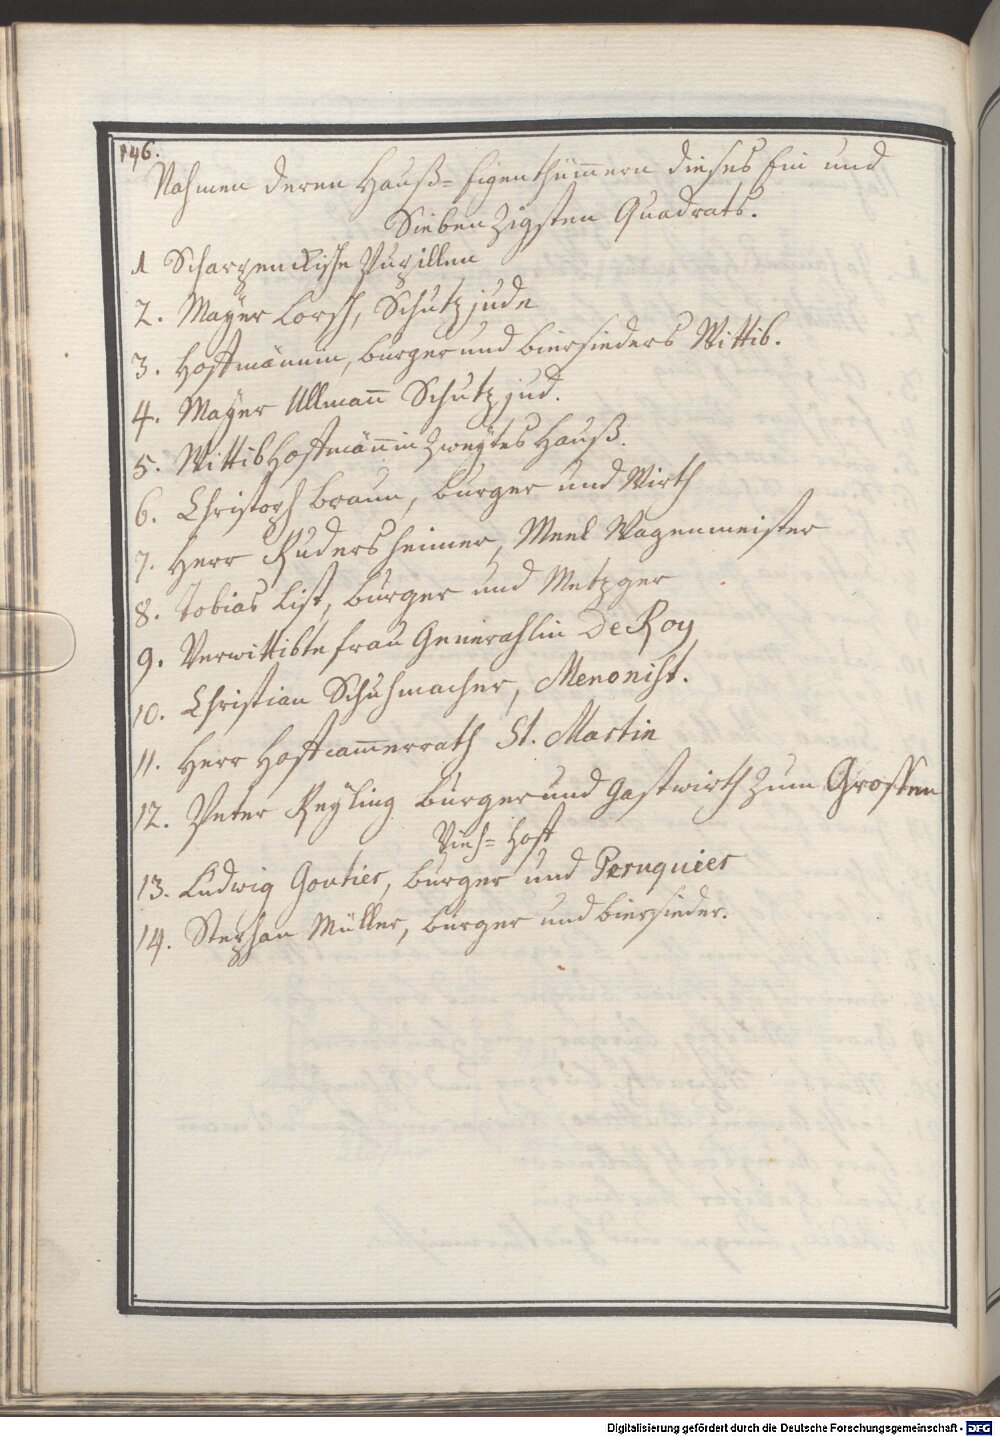 146.
Nahmen deren Hauß=Eigenthümmern dieses Ein und
Siebenzigsten Quadrats.
1 Scharpenckische Pupillen
2. Mayer Lorch, Schutzjude
3. Hoffmännin, burger und biersieders Wittib.
4. Mayer Ullmann Schutzjud.
5. Wittib Hoffmännin zweytes Hauß.
6. Christoph Braun, burger und Wirth
7. Herr Rudersheimer, Meel Wagenmeister
8. Tobias List, burger und Metzger
9. Verwittibte frau Generahlin De Roy
10. Christian Schuhmacher, Menonist.
11. Herr Hoffcammerrath St. Martin
12. Peter Reyling burger und Gastwirth zum Grossen
Vieh=Hoff
13. Ludwig Goutier, burger und Peruquier
14. Stephan Müller, burger und biersieder.
Digitalisierung gefördert durch die Deutsche Forschungsgemeinschaft - DFG